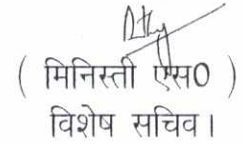 ( मिनिस्ती एस0 )
विशेष सचिव।